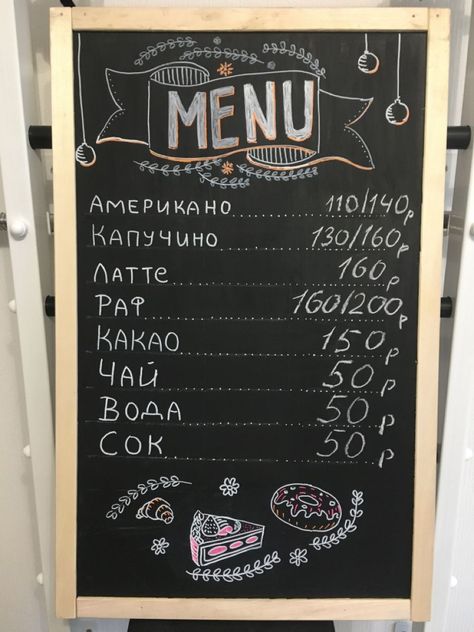 MENU
АМЕРИКАНО 110/140р
КАПУЧИНО 130/160р
ЛАТТЕ 160р
РАФ 160/200р
КАКАО 150р
ЧАЙ 50р
ВОДА 50р
СОК 50р